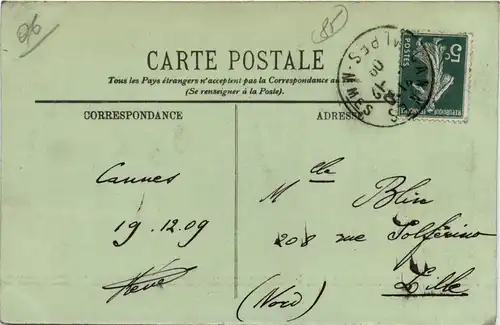 96
85
CARTE POSTALE
Tous les Pays étrangers n'acceptent pas la Correspondance au
(Se renseigner à la Poste).
5c
POSTES
CORRESPONDANCE
ADRESSE
Cannes
19.12.09
Mlle Blin
208 rue Solférino
Lille
(Nord)